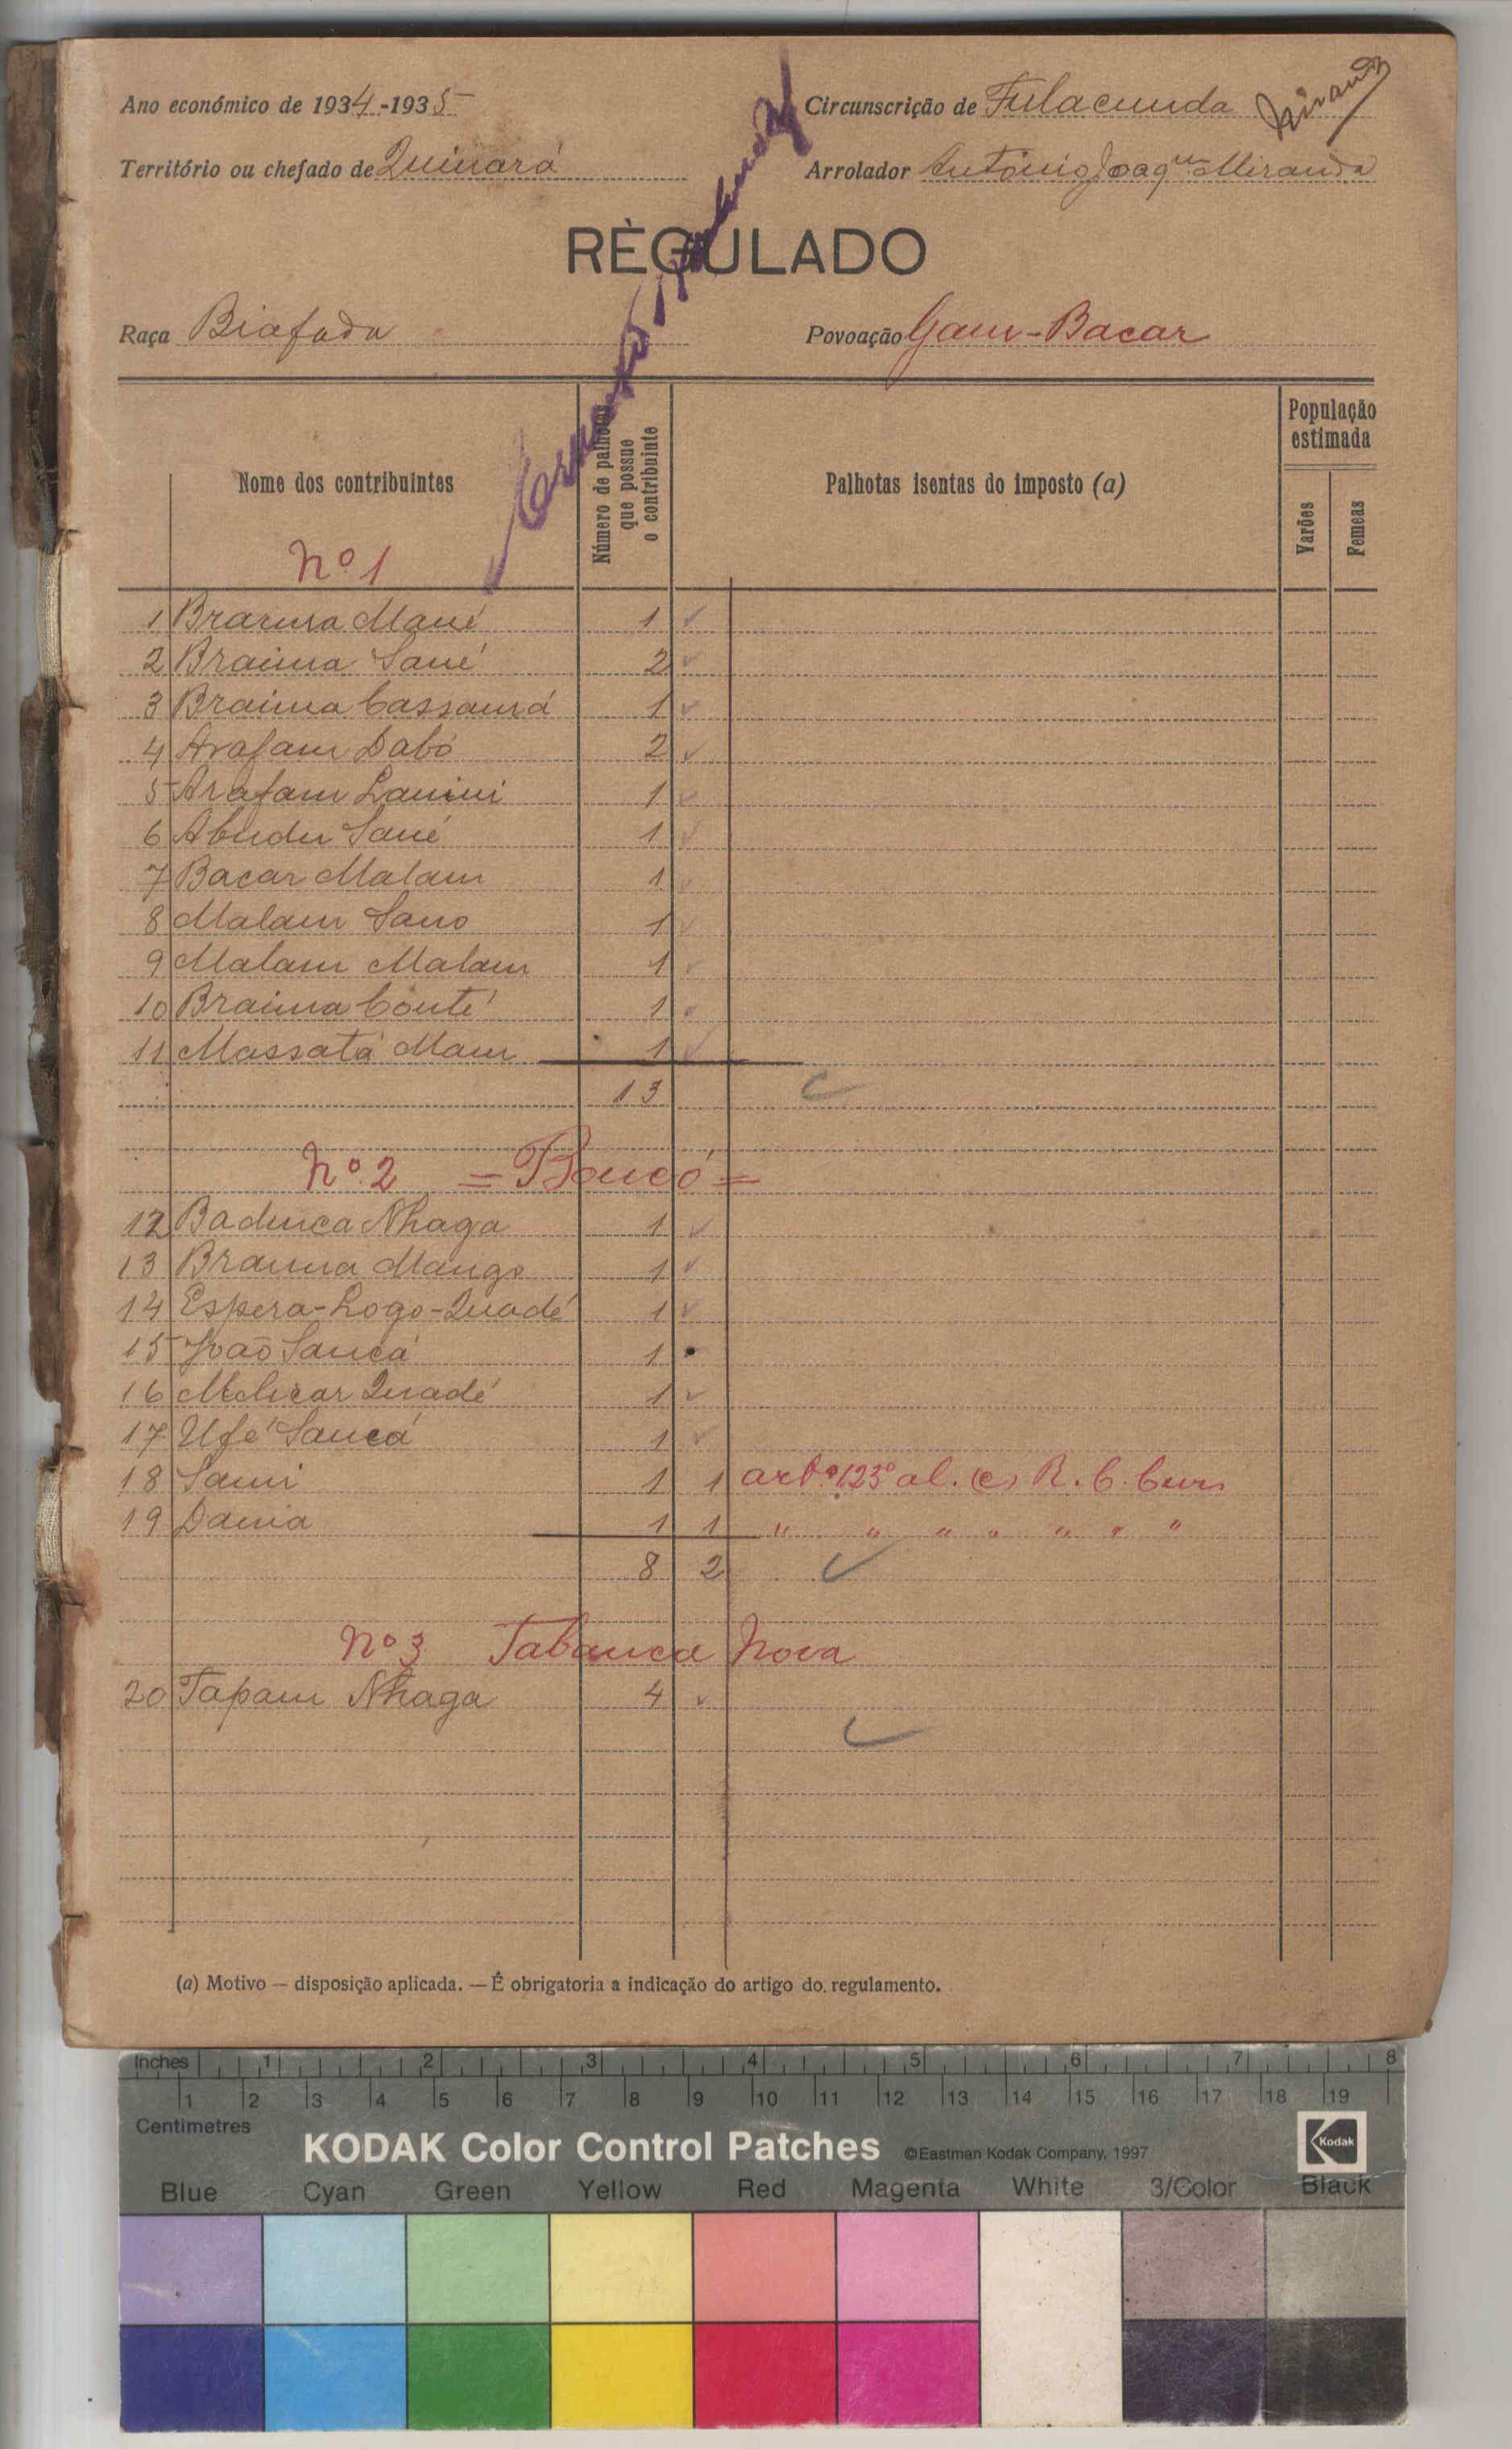 Ano económico de 1934-1935 Circunscrição de Fulacunda
Território ou chefado de Quinará Arrolador António Joaqm Miranda
REGULADO
Raça Biafada Povoação Gam-Bacar
Nome dos contribuintes
Número de palhotas que possue o contribuinte
Palhotas isentas do imposto (a)
População estimada
Varões
Femeas
Nº 1
1 Braima Mané 1
2 Braima Sané 2
3 Braima Cassamá 1
4 Arafam Dabó 2
5 Arafam Lamini 1
6 Abudu Sané 1
7 Bacar Malam 1
8 Malam Sano 1
9 Malam Malam 1
10 Braima Conté 1
11 Massatá Mam 1
13
Nº 2 = Bancó =
12 Baduca Nhaga 1
13 Brauma Mango 1
14 Espera-Logo-Quadé 1
15 João Sancá 1
16 Melicar Quadé 1
17 Ufé Sancá 1
18 Sami 1 1 artº 123º al. (c) R. C. Curs
19 Dama 1 1 " " " " " " "
8 2
Nº 3 Tabanca Nova
20 Tapam Nhaga 4
(a) Motivo — disposição aplicada. — É obrigatoria a indicação do artigo do regulamento.
Inches 1 2 3 4 5 6 7 8
1 2 3 4 5 6 7 8 9 10 11 12 13 14 15 16 17 18 19
Centimetres
KODAK Color Control Patches ©Eastman Kodak Company, 1997 Kodak
Blue Cyan Green Yellow Red Magenta White 3/Color Black